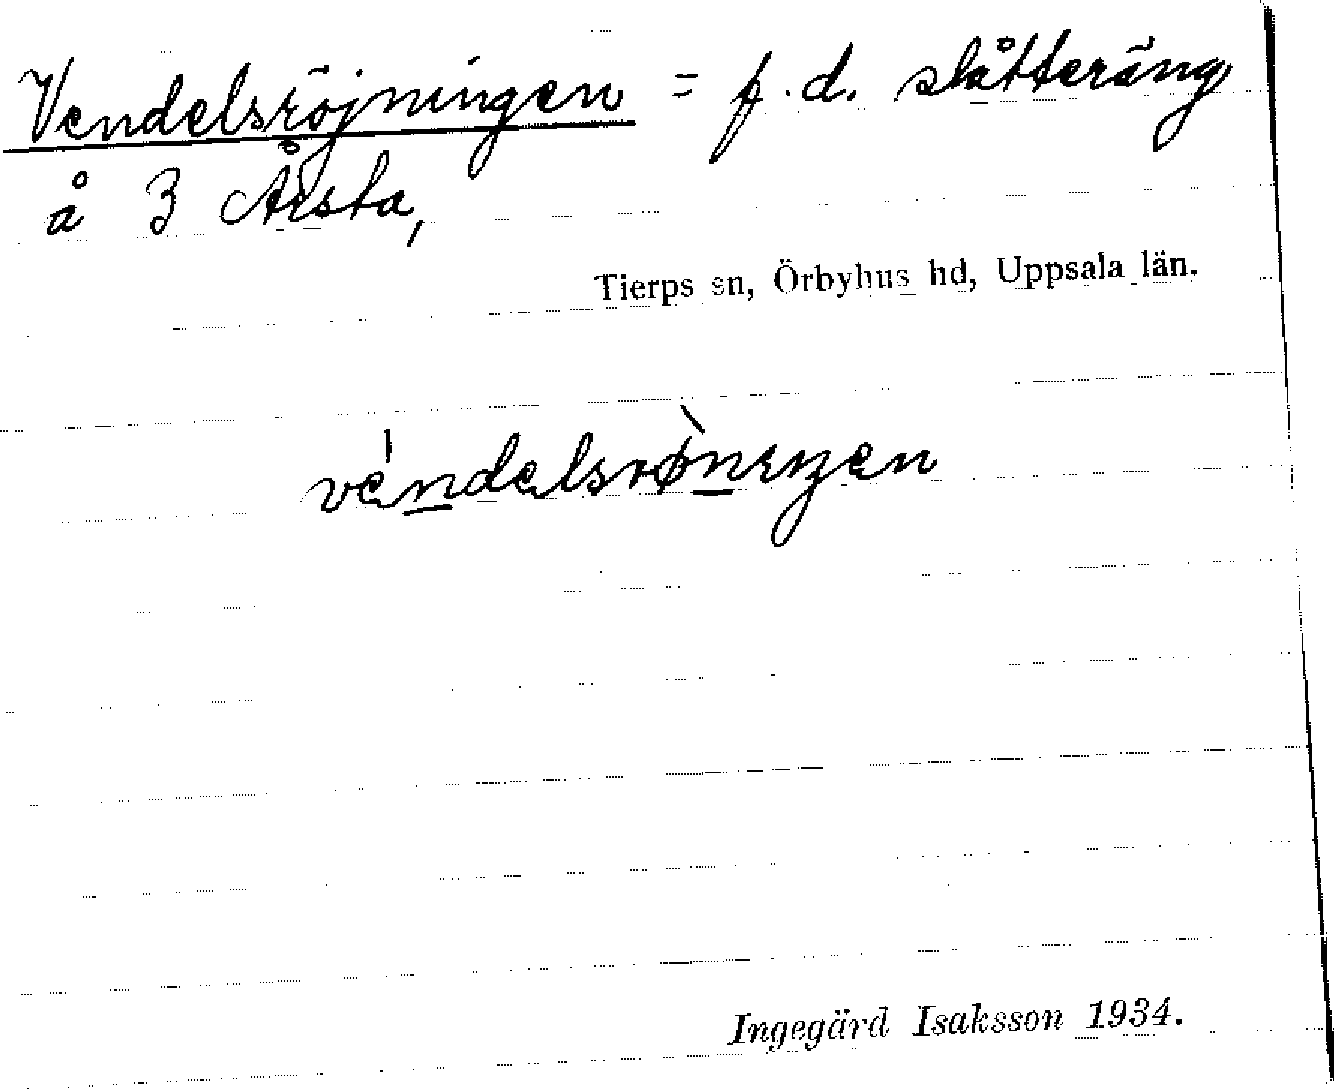 Vendelsröjningen = f.d. slåtteräng
å 3 Årsta,
Tierps sn, Örbyhus hd, Uppsala län.
vèndelsrø̀nɪŋen
Ingegärd Isaksson 1934.